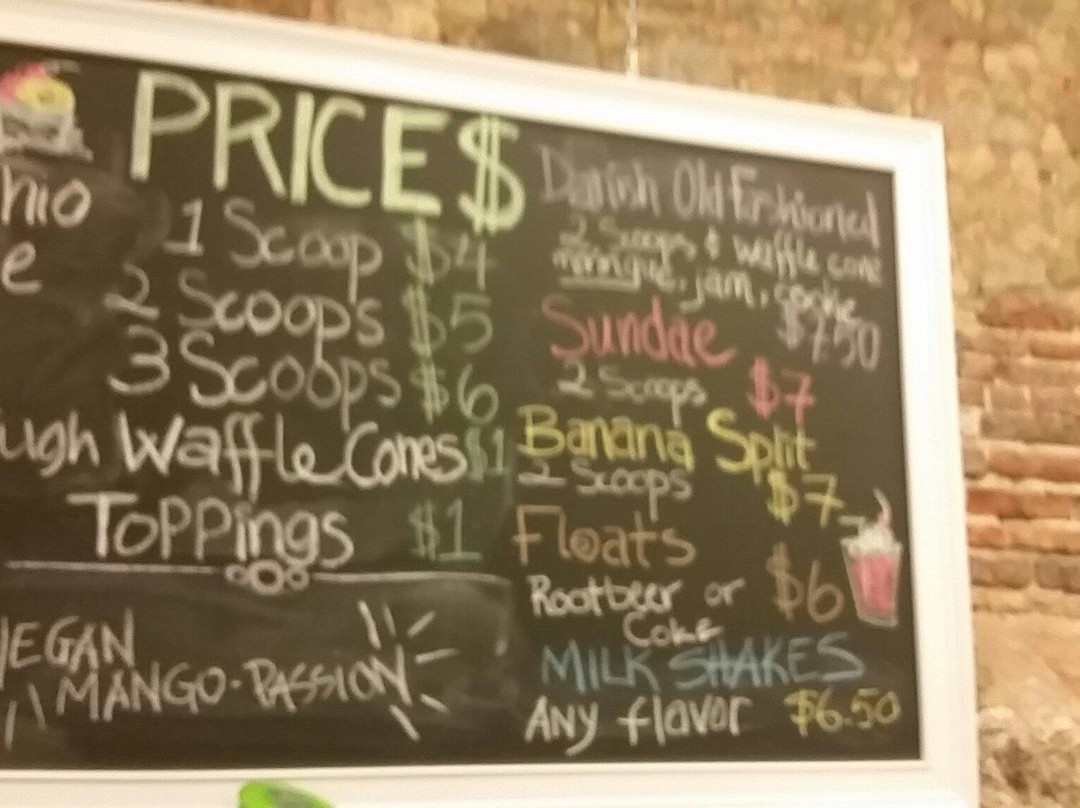 PRICE$
nio
e
1 Scoop $4
2 Scoops $5
3 Scoops $6
ugh Waffle Cones $1
Toppings $1
VEGAN
MANGO-PASSION
Danish Old Fashioned
2 Scoops & waffle cone
jam, cookie
$7.50
Sundae
2 Scoops $7
Banana Split
2 Scoops $7
Floats
Rootbeer or $6
Coke
MILK SHAKES
Any flavor $6.50